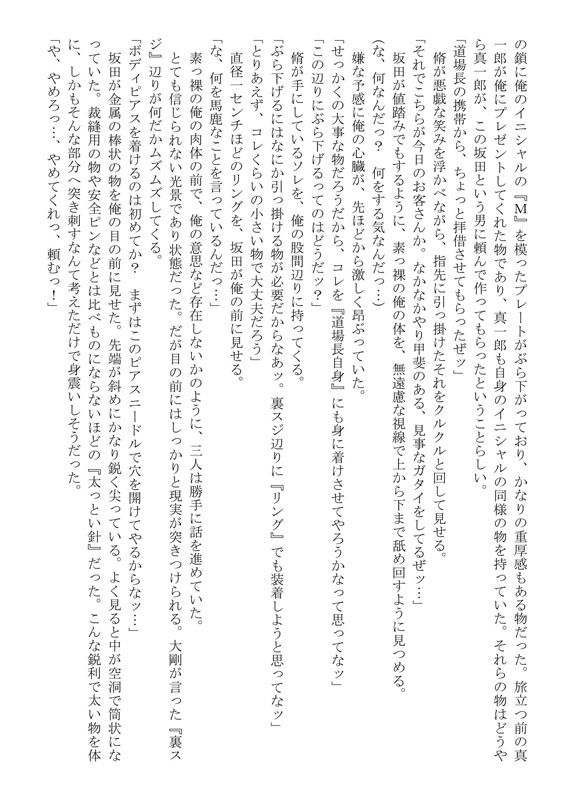 の鎖に俺のイニシャルの『M』を模ったプレートがぶら下がっており、かなりの重厚感もある物だった。旅立つ前の真
一郎が俺にプレゼントしてくれた物であり、真一郎も自身のイニシャルの同様の物を持っていた。それらの物はどうや
ら真一郎が、この坂田という男に頼んで作ってもらったということらしい。
「道場長の携帯から、ちょっと拝借させてもらったぜッ」
脩が悪戯な笑みを浮かべながら、指先に引っ掛けたそれをクルクルと回して見せる。
「それでこちらが今日のお客さんか。なかなかやり甲斐のある、見事なガタイをしてるぜッ…」
坂田が値踏みでもするように、素っ裸の俺の体を、無遠慮な視線で上から下まで舐め回すように見つめる。
(な、何なんだっ？　何をする気なんだっ…)
嫌な予感に俺の心臓が、先ほどから激しく昂ぶっていた。
「せっかくの大事な物だろうだから、コレを『道場長自身』にも身に着けさせてやろうかなって思ってなッ」
「この辺りにぶら下げるってのはどうだッ？」
脩が手にしているソレを、俺の股間辺りに持ってくる。
「ぶら下げるにはなにか引っ掛ける物が必要だからなあッ。裏スジ辺りに『リング』でも装着しようと思ってなッ」
「とりあえず、コレくらいの小さい物で大丈夫だろう」
直径一センチほどのリングを、坂田が俺の前に見せる。
「な、何を馬鹿なことを言っているんだっ…」
素っ裸の俺の肉体の前で、俺の意思など存在しないかのように、三人は勝手に話を進めていた。
とても信じられない光景であり状態だった。だが目の前にはしっかりと現実が突きつけられる。大剛が言った『裏ス
ジ』辺りが何だかムズムズしてくる。
「ボディピアスを着けるのは初めてか？　まずはこのピアスニードルで穴を開けてやるからなッ…」
坂田が金属の棒状の物を俺の目の前に見せた。先端が斜めにかなり鋭く尖っている。よく見ると中が空洞で筒状にな
っていた。裁縫用の物や安全ピンなどとは比べものにならないほどの『太っとい針』だった。こんな鋭利で太い物を体
に、しかもそんな部分へ突き刺すなんて考えただけで身震いしそうだった。
「や、やめろっ…、やめてくれっ、頼むっ！」